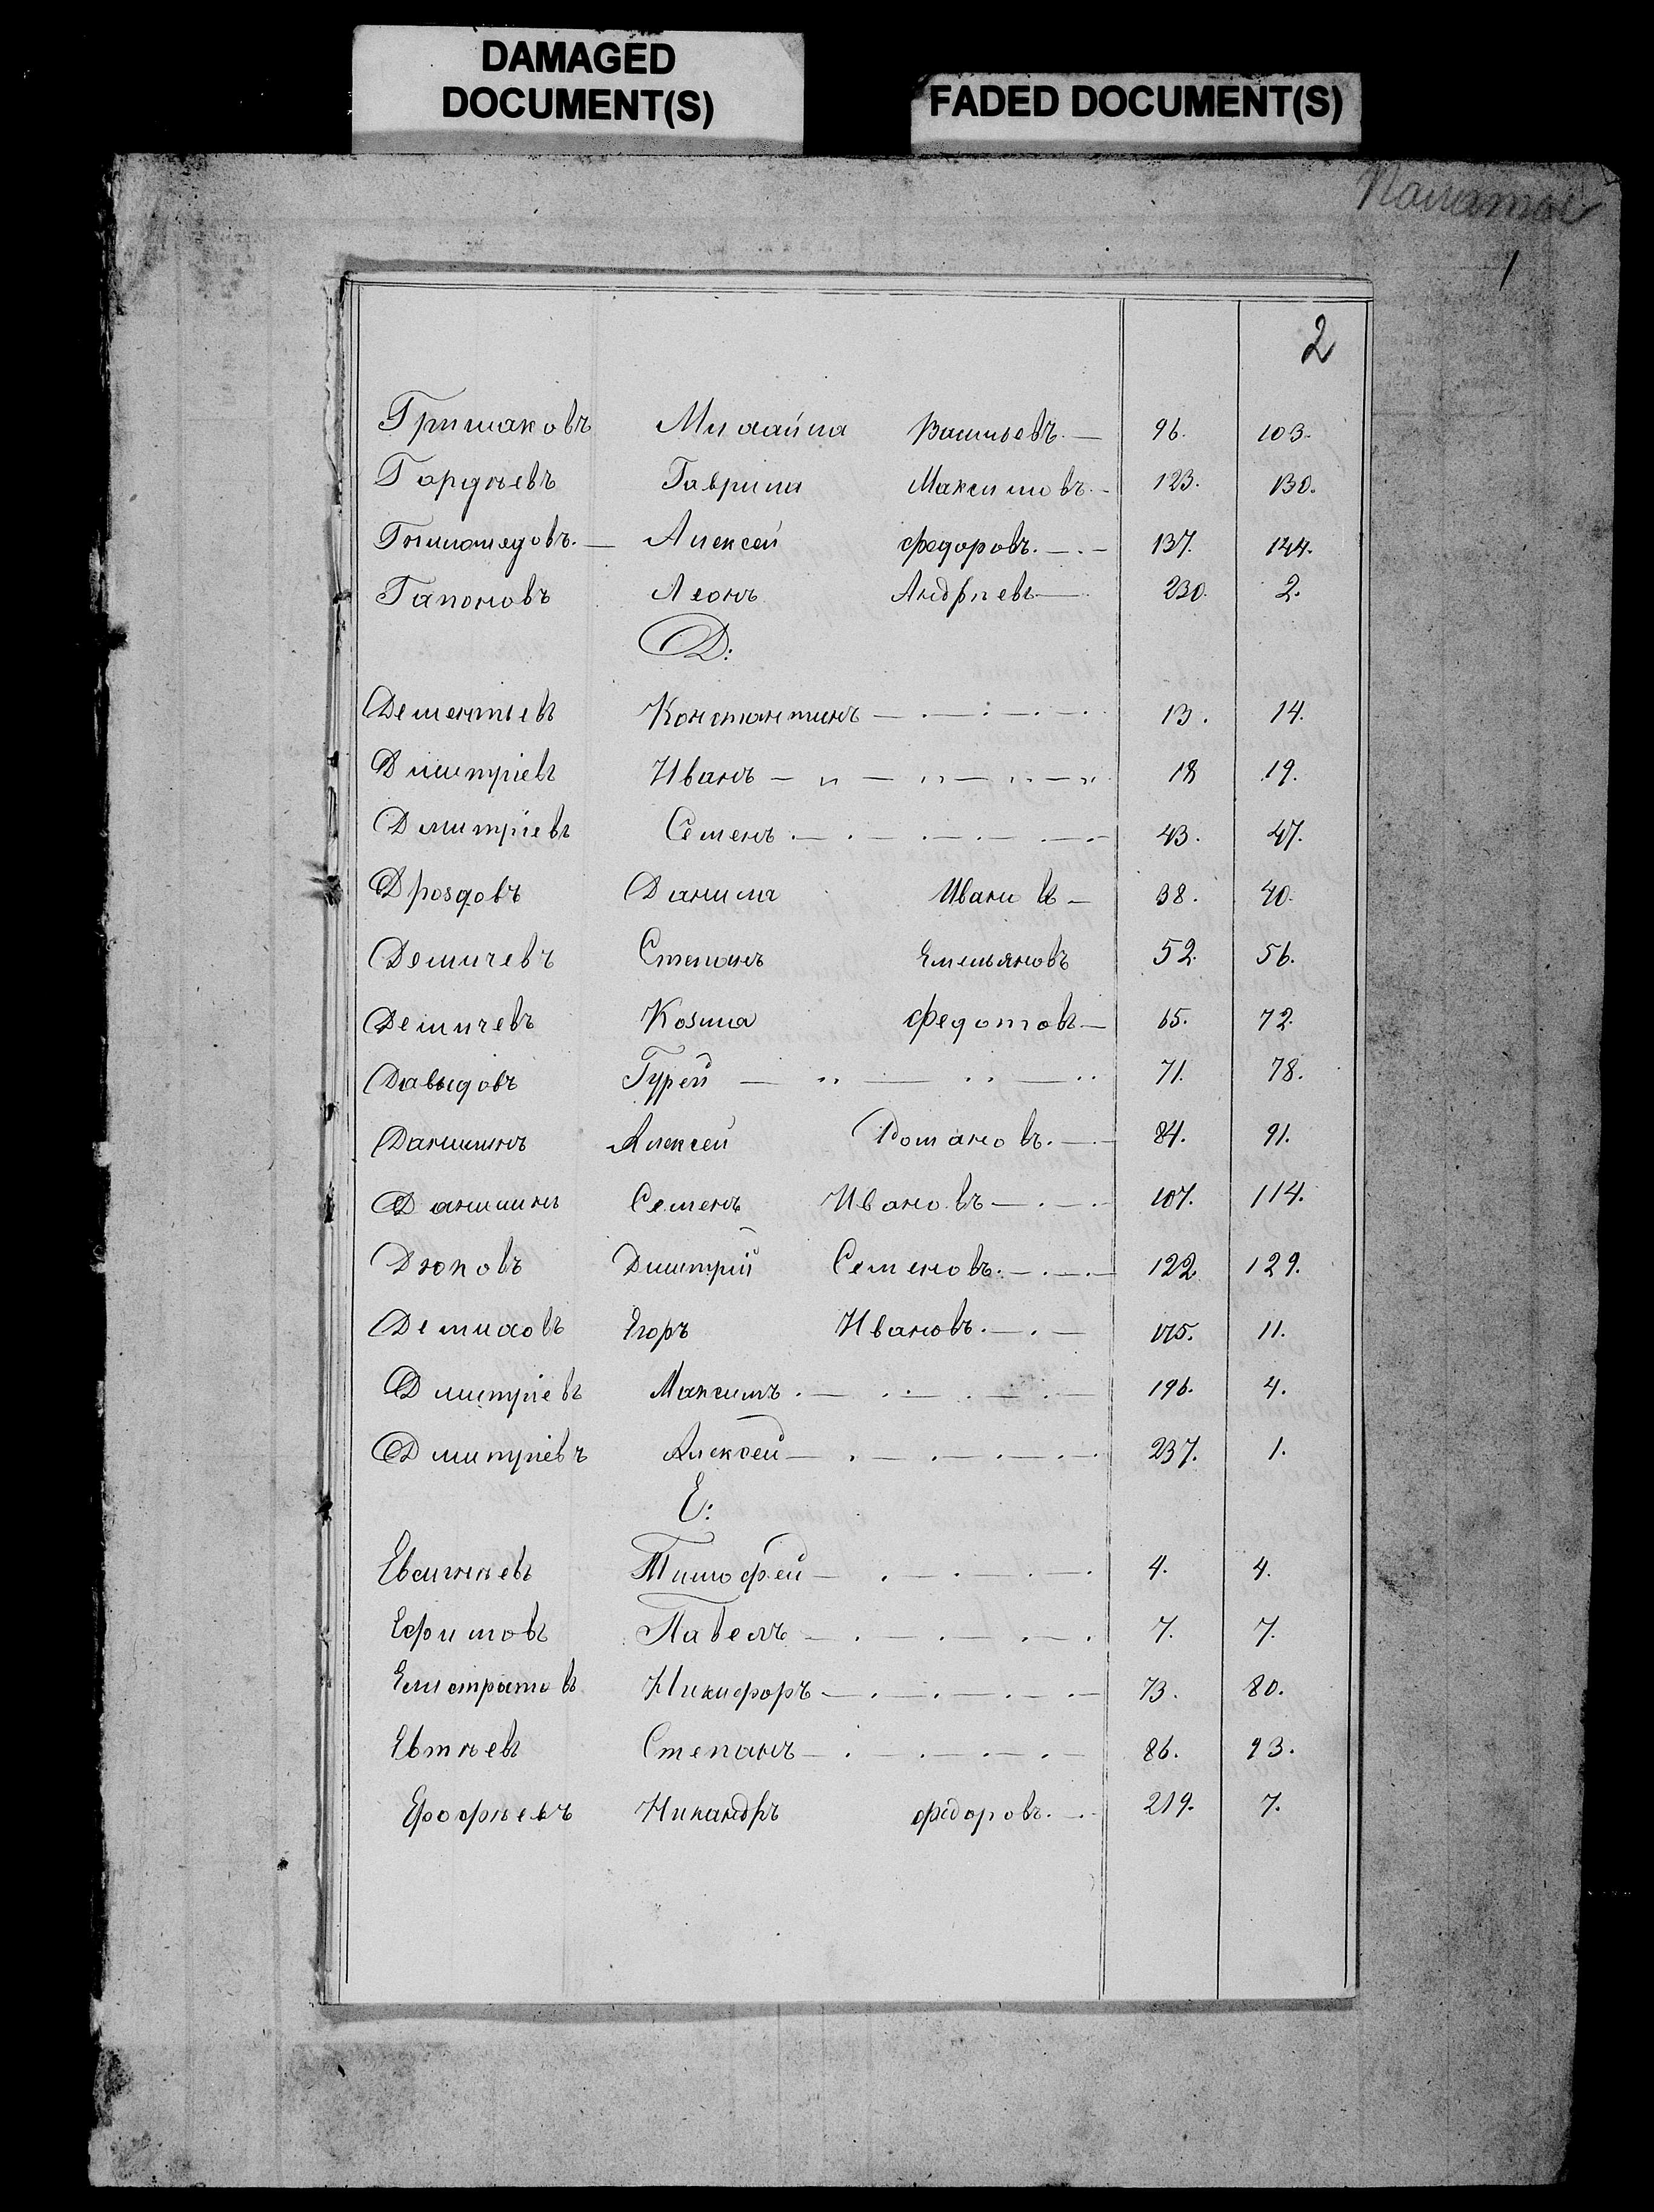 DAMAGED
DOCUMENT(S)
FADED DOCUMENT(S)
1
2
Гришаковъ Михайла Васильевъ. — 96. 103.
Гордѣевъ Гаврила Максимовъ. - 123. 130.
Алексей Федоровъ. — . - 137. 144.
Гапоновъ Леонъ Андрѣевъ — 230. 2.
Д:
Дементьевъ Константинъ — . — . — . — . 13. 14.
Дмитріевъ Иванъ — „ — „ — „ — „ 18 19.
Дмитріевъ Семенъ . — . — . — . — . - 43. 47.
Дроздовъ Данила Ивановъ — 38. 40.
Демичевъ Степанъ Емельяновъ 52. 56.
Демичевъ Козма Федотовъ — 65. 72.
Давыдовъ Гурей — .. — .. — .. 71. 78.
Даншинъ Алексей Романовъ. — . - 84. 91.
Даншинъ Семенъ Ивановъ — . — . - 107. 114.
Дюковъ Дмитрій Семеновъ. — . — . — 122 129.
Демиховъ Егоръ Ивановъ. — . — 175. 11.
Дмитріевъ Максимъ . — . . — . — . — 196. 4.
Дмитріевъ Алексей — . — . — . — . 237. 1.
Е:
Евсигнѣевъ Тимофей — . — . — . — . 4. 4.
Ефимовъ Павелъ — . — . — . — . 7. 7.
Елистратовъ Никифоръ — . — . — . — 73. 80.
Евтѣевъ Степанъ — . — . — . — 86. 93.
Ерофѣевъ Никандръ Федоровъ. — . 219. 7.